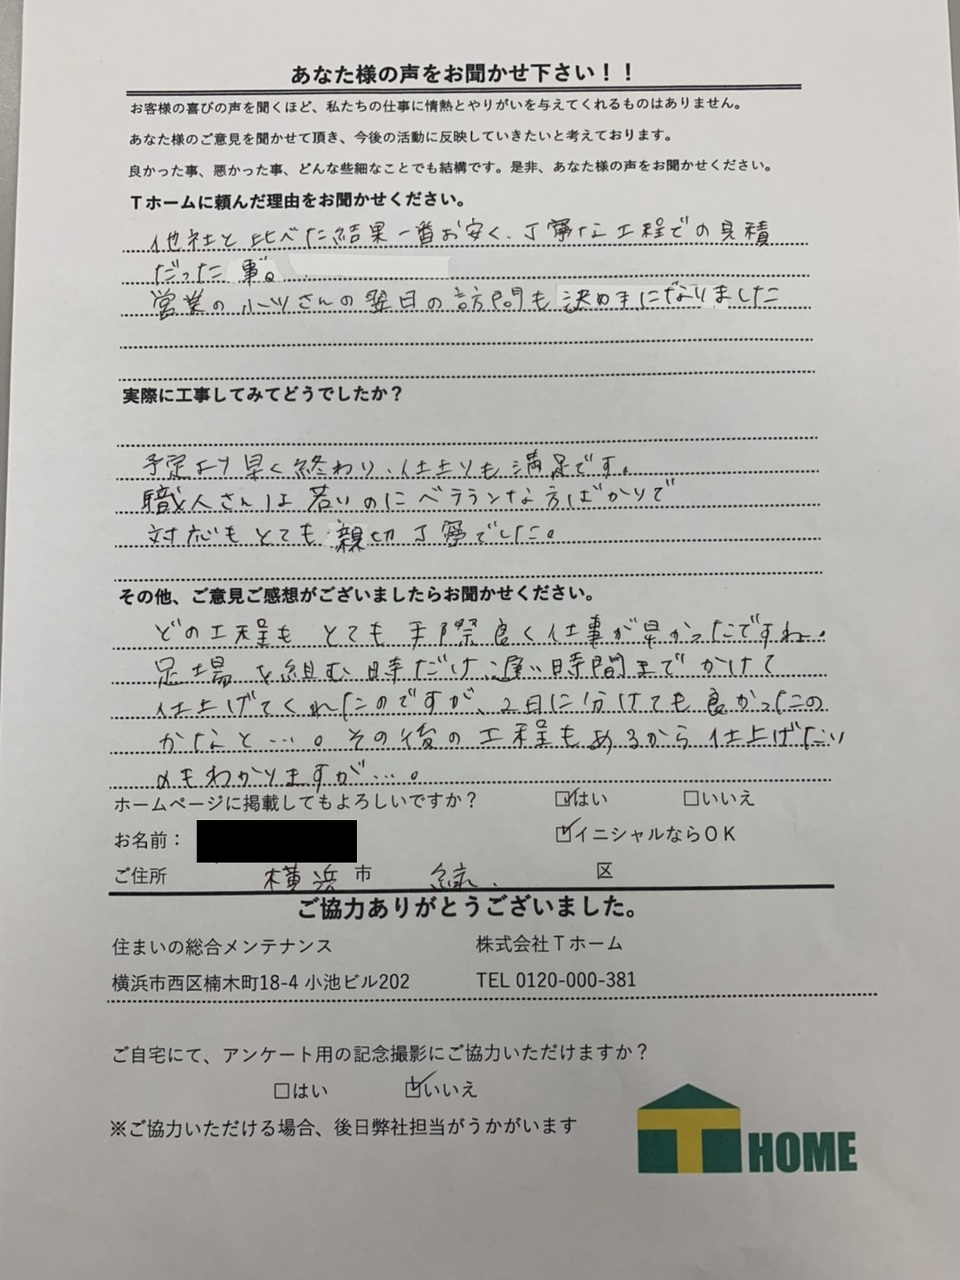 あなた様の声をお聞かせ下さい！！
お客様の喜びの声を聞くほど、私たちの仕事に情熱とやりがいを与えてくれるものはありません。
あなた様のご意見を聞かせて頂き、今後の活動に反映していきたいと考えております。
良かった事、悪かった事、どんな些細なことでも結構です。是非、あなた様の声をお聞かせください。
Ｔホームに頼んだ理由をお聞かせください。
他社と比べた結果一番お安く、丁寧な工程での見積
だった事。
営業の小ツさんの翌日の訪問も決め手になりました
実際に工事してみてどうでしたか？
予定より早く終わり、仕上りも満足です。
職人さんは若いのにベテランな方ばかりで
対応もとても親切丁寧でした。
その他、ご意見ご感想がございましたらお聞かせください。
どの工程もとても手際良く仕事が早かったですね。
足場を組む時だけ遅い時間までかけて
仕上げてくれたのですが、2日に分けても良かったの
かなと…。その後の工程もあるから仕上げたい
のもわかりますが…。
ホームページに掲載してもよろしいですか？ ☑はい □いいえ
お名前： ☑イニシャルならＯＫ
ご住所 横浜市 緑 区
ご協力ありがとうございました。
住まいの総合メンテナンス 株式会社Ｔホーム
横浜市西区楠木町18-4 小池ビル202 TEL 0120-000-381
ご自宅にて、アンケート用の記念撮影にご協力いただけますか？
□はい ☑いいえ
※ご協力いただける場合、後日弊社担当がうかがいます
T HOME